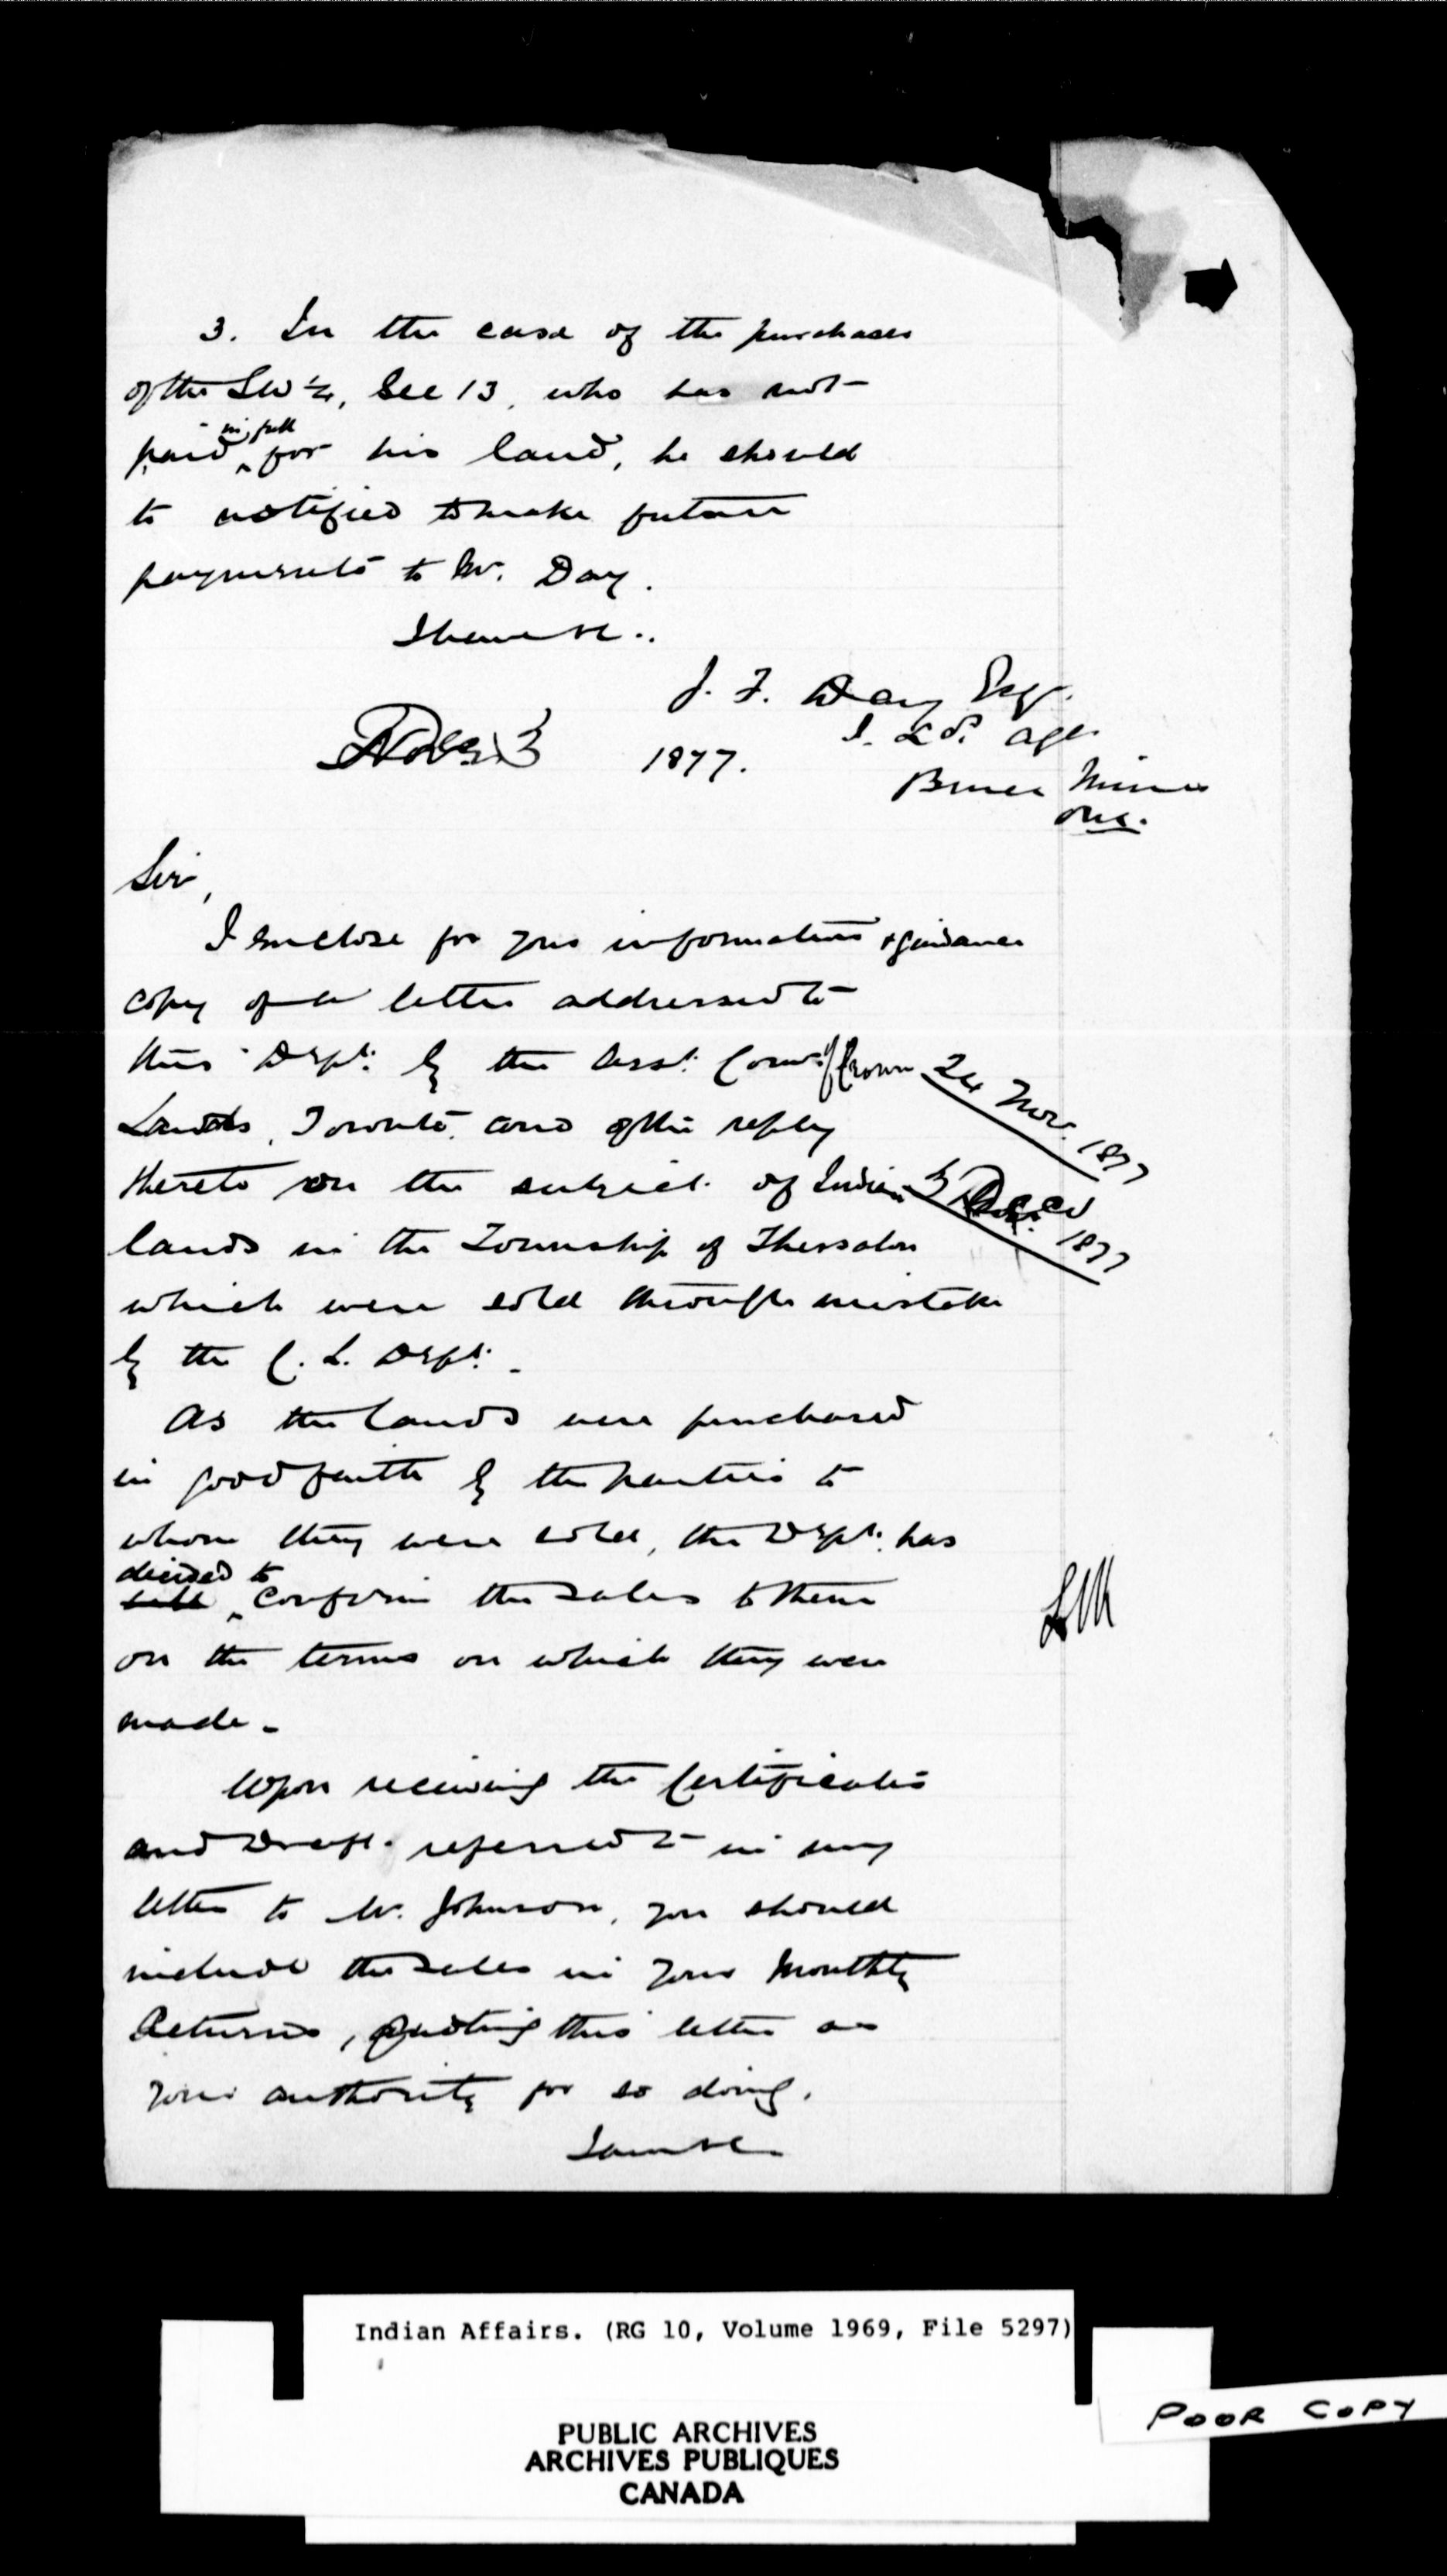 3. In the case of the purchaser
of the SW ¼, Sec 13, who has not
paid in full for his land, he should
to notified to make future
payments to Mr. Day.
I have &c..
J. F. Day Esq.
I. L. Agt
Bruce Mines
Ont.
3 1877.
Sir,
I enclose for your information & guidance
copy of a letter addressed to
this Dept. by the Asst. Comr. of Crown
24 Nov. 1877
Lands, Toronto, and of the reply
thereto on the subject of Indian
3 Decr 1877
lands in the Township of Thessalon
which were sold through mistake
by the C. L. Dept.
As the lands were purchased
in good faith by the parties to
whom they were sold, the Dept. has
decided to
will confirm the sales to them
on the terms on which they were
made.
Upon receiving the Certificates
and Draft referred to in my
letter to Mr. Johnson, you should
include the sales in your Monthly
Returns, quoting this letter as
your authority for so doing.
I am &c
Indian Affairs. (RG 10, Volume 1969, File 5297)
PUBLIC ARCHIVES
ARCHIVES PUBLIQUES
CANADA
POOR COPY